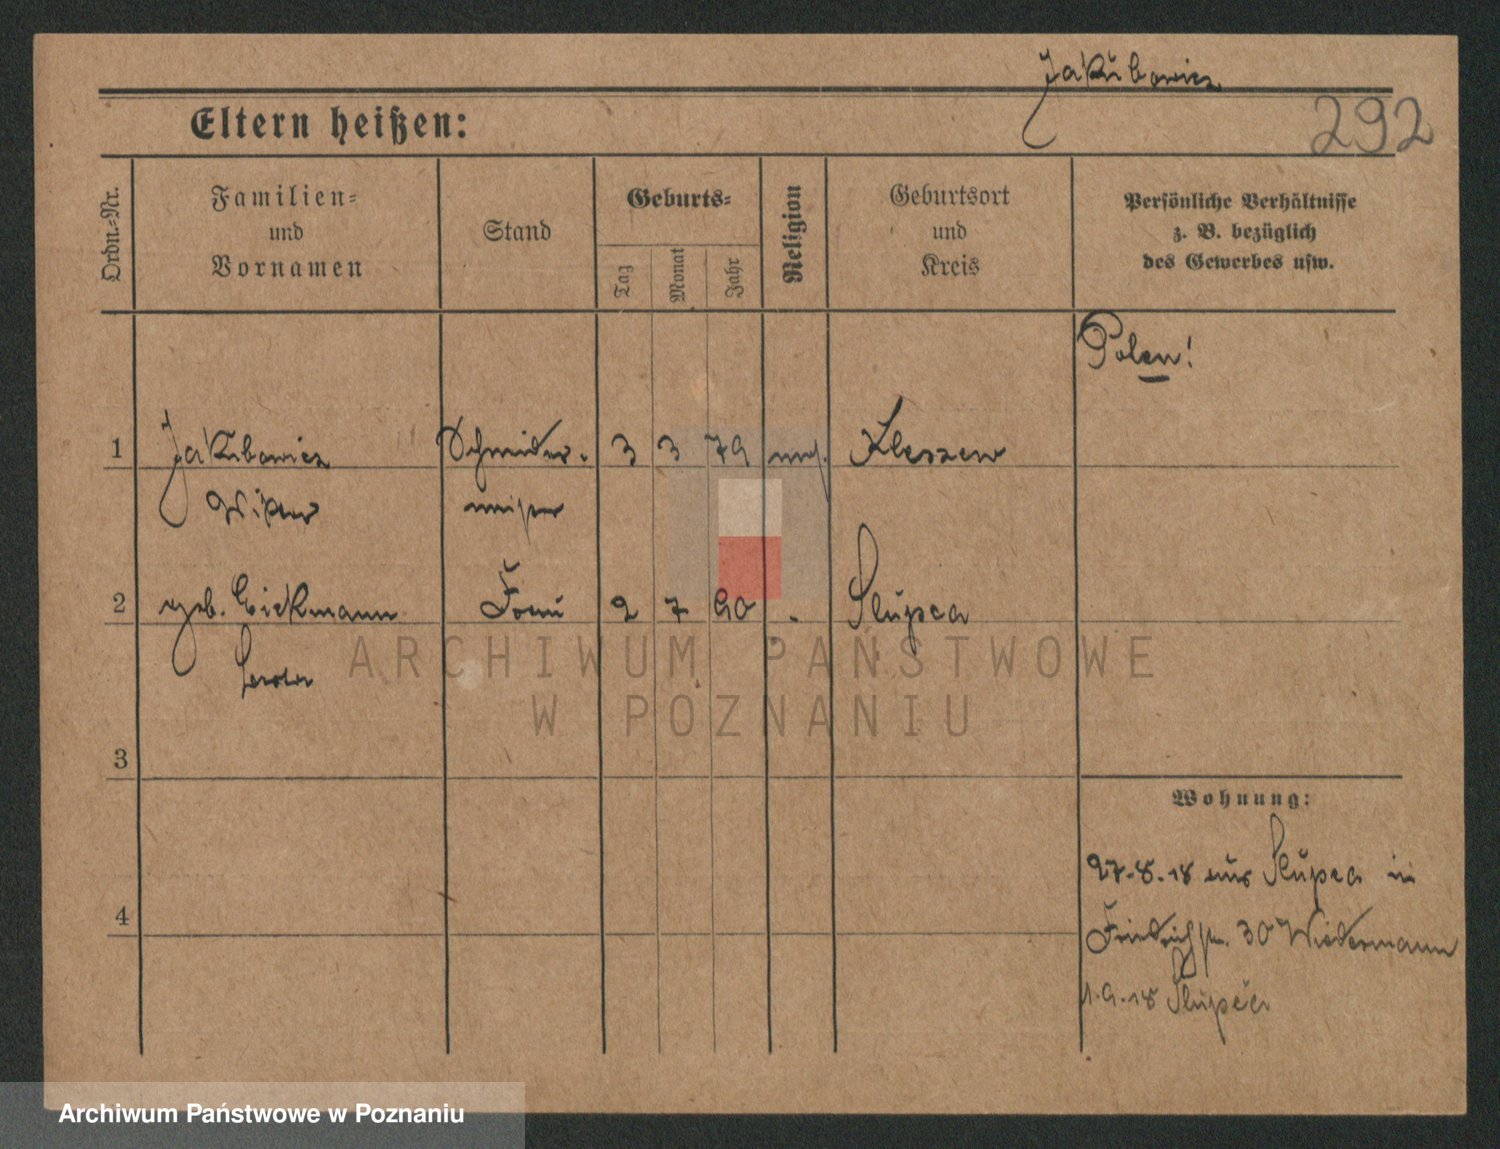 Jakubowicz
292
Eltern heißen:
Ordn.=Nr.
Familien=
und
Vornamen
Stand
Geburts=
Tag
Monat
Jahr
Religion
Geburtsort
und
Kreis
Persönliche Verhältnisse
z. B. bezüglich
des Gewerbes usw.
Polen!
1 Jakubowicz Schneider- 3 3 79 mos. Kleszew
meister
2 geb. Frau 2 7 90 Slupca
ARCHIWUM PAŃSTWOWE
W POZNANIU
3
Wohnung:
27.8.18 aus Slupca in
4
Friedrichstr. 30 Wiedermann
1.9.18 Slupca
Archiwum Państwowe w Poznaniu